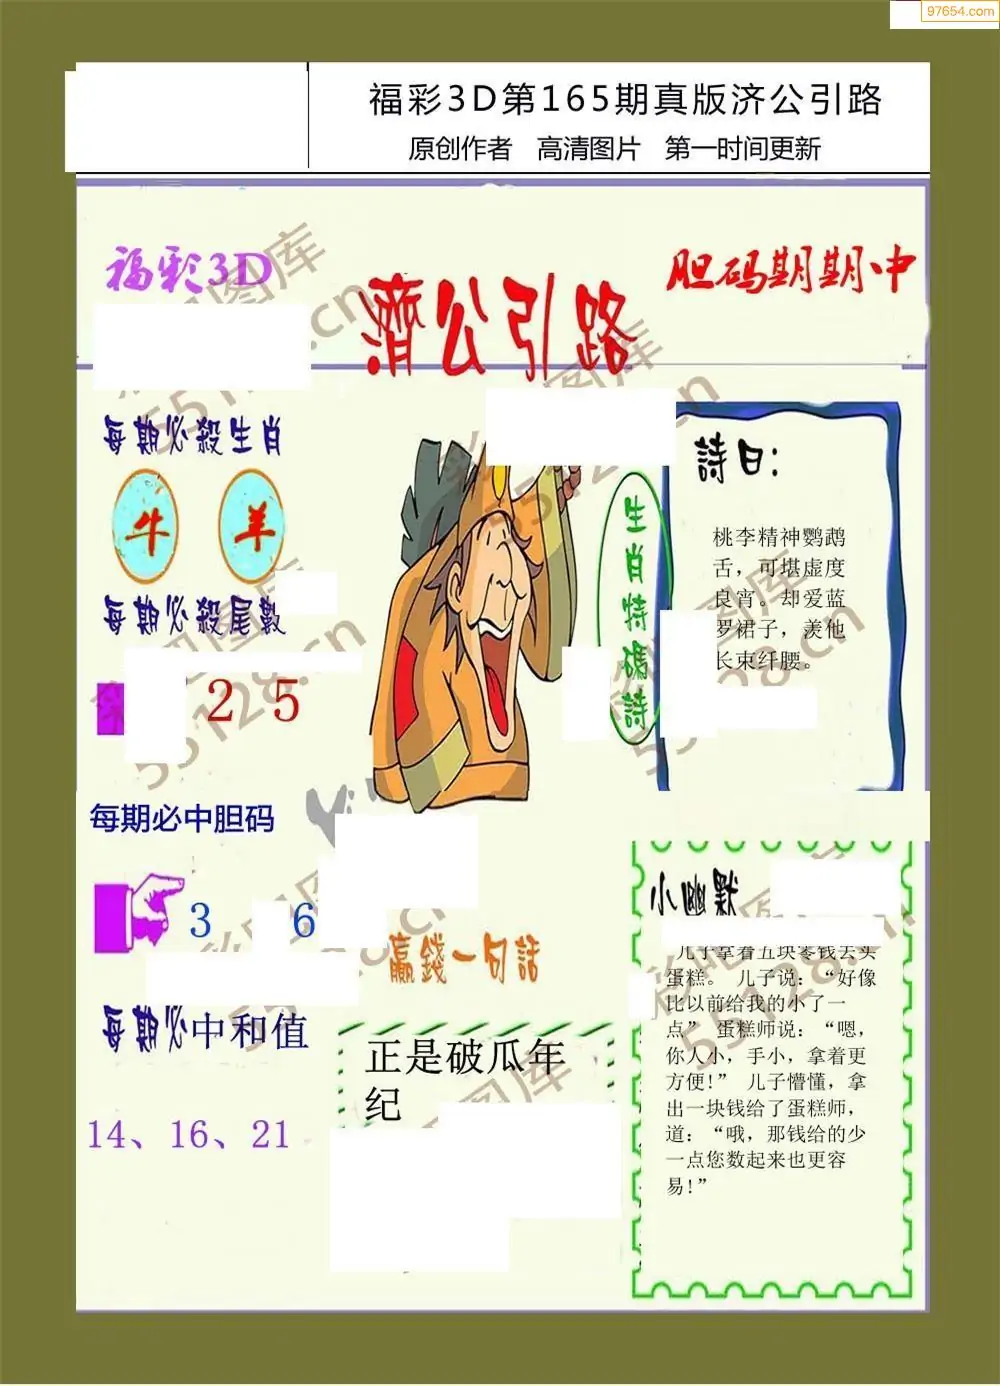 97654.com
福彩3D第165期真版济公引路
原创作者 高清图片 第一时间更新
福彩3D
濟公引路
胆码期期中
每期必殺生肖
牛 羊
每期必殺尾數
2 5
每期必中胆码
3 6
每期必中和值
14、16、21
生肖特碼詩
詩曰:
桃李精神鹦鹉
舌，可堪虚度
良宵。却爱蓝
罗裙子，羡他
长束纤腰。
赢錢一句話
正是破瓜年
纪
小幽默
儿子拿着五块零钱去买
蛋糕。 儿子说：“好像
比以前给我的小了一
点” 蛋糕师说：“嗯，
你人小，手小，拿着更
方便!” 儿子懵懂，拿
出一块钱给了蛋糕师，
道：“哦，那钱给的少
一点您数起来也更容
易!”
彩吧图库
55128.cn